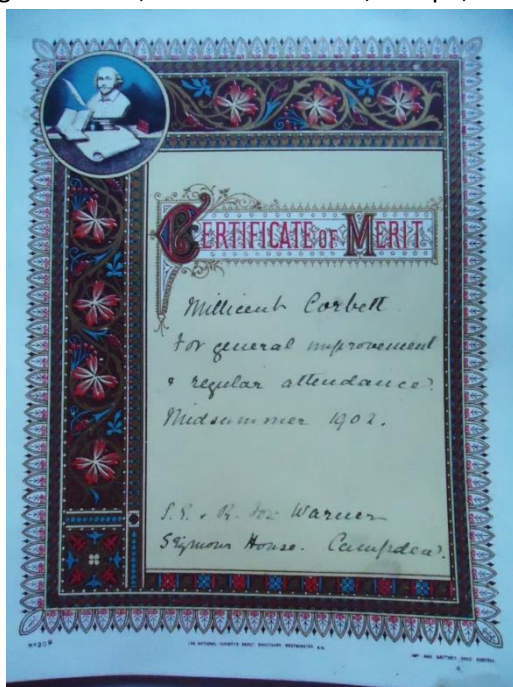 CERTIFICATE OF MERIT
Millicent Corbett
For general improvement
& regular attendance.
Midsummer 1902.
S. E. & R. Warner
Seymour House. Campden.
No 206
THE NATIONAL SOCIETY'S DEPOT SANCTUARY WESTMINSTER S.W.